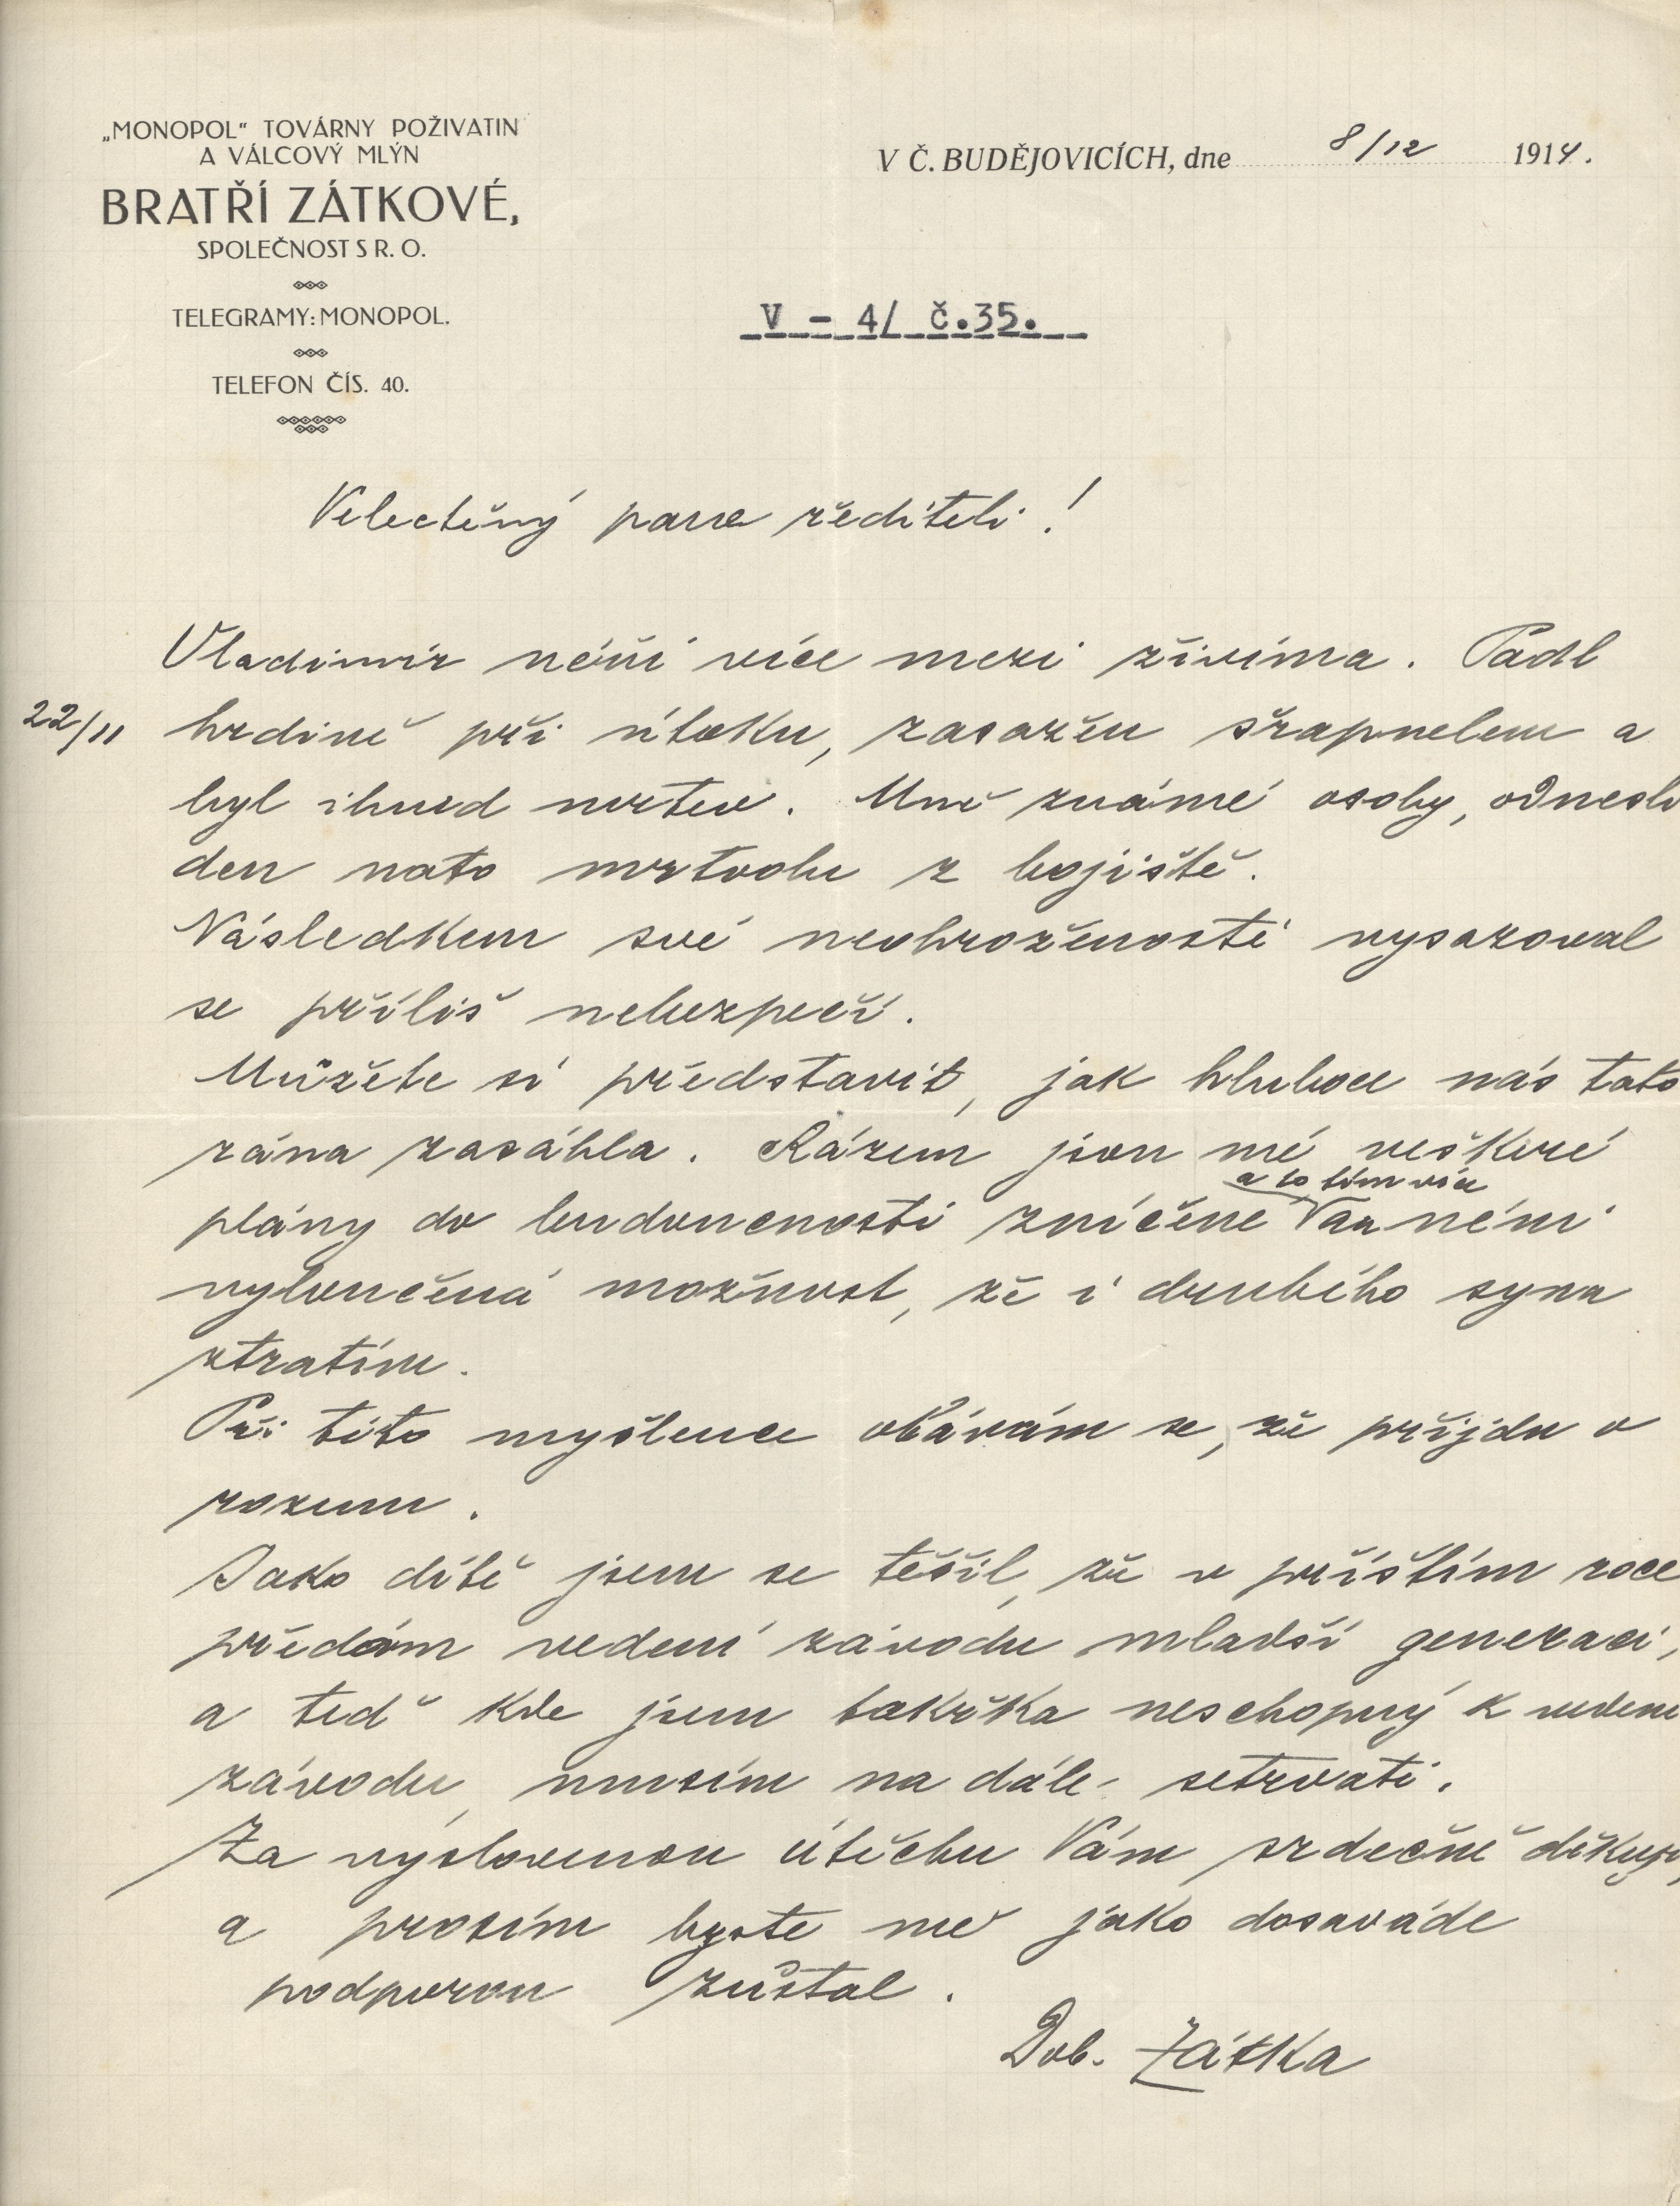 „MONOPOL" TOVÁRNY POŽIVATIN
A VÁLCOVÝ MLÝN
BRATŘÍ ZÁTKOVÉ,
SPOLEČNOST S R. O.
TELEGRAMY: MONOPOL.
TELEFON ČÍS. 40.
V Č. BUDĚJOVICÍCH, dne 8/12 1914.
V - 4/ č.35.
Velectěný pane řediteli!
Vladimír néní více mezi živíma. Padl
22/11 hrdině při útoku, zasažen šrapnelem a
byl ihned mrtev. Mně známé osoby, odnesli
den nato mrtvolu z bojiště.
Následkem své neohroženosti vysazoval
se příliš nebezpečí.
Můžete si představit, jak hluboce nás tato
rána zasáhla. Rázem jsou mé veškeré
a to tím více
plány do budoucnosti zničene néni
vyloučená možnost, že i druhého syna
ztratím.
Při této myšlence obávám se, že přijdu o
rozum.
Jako dítě jsem se těšil, že v příštím roce
předám vedení závodu mladší generaci,
a teď kde jsem takřka neschopný k vedení
závodu, musím na dále setrvati.
Za vyslovenou útěchu Vám srdečně děkuji,
a prosím byste mě jako dosaváde
podporou zůstal.
Dob. Zátka